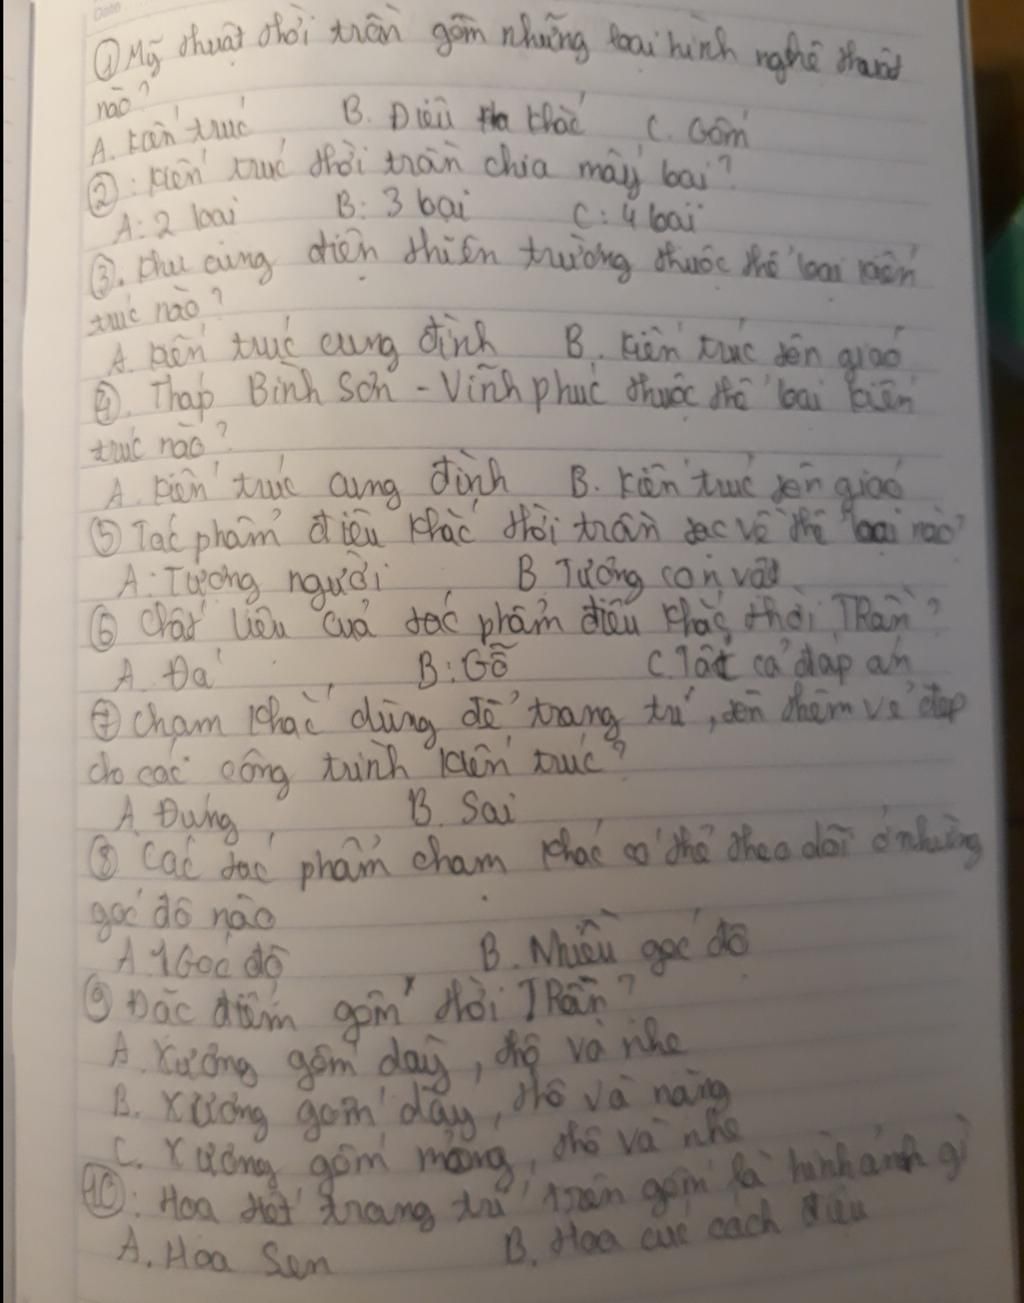 ① Mỹ thuật thời trần gồm những loại hình nghệ thuật
nào?
A. kiến trúc B. Điêu khắc C. Gốm
②: kiến trúc thời trần chia mấy loại?
A: 2 loại B: 3 loại C: 4 loại
③. khu cung điện thiên trường thuộc thể loại kiến
trúc nào?
A. kiến trúc cung đình B. kiến trúc tôn giáo
④. Tháp Bình Sơn - Vĩnh phúc thuộc thể loại kiến
trúc nào?
A. kiến trúc cung đình B. kiến trúc tôn giáo
⑤ Tác phẩm điêu khắc thời trần tạc về thể loại nào?
A: Tượng người B Tượng con vật
⑥ Chất liệu của tác phẩm điêu khắc thời TRần?
A. Đá B: Gỗ C. Tất cả đáp án
⑦ chạm khắc dùng để trang trí, tôn thêm vẻ đẹp
cho các công trình kiến trúc?
A. Đúng B. Sai
⑧ Các tác phẩm chạm khắc có thể theo dõi ở những
góc độ nào
A 1 Góc độ B. Nhiều góc độ
⑨ Đặc điểm gốm thời TRần?
A. Xương gốm dày, thô và nhẹ
B. Xương gốm dày, thô và nặng
C. Xương gốm mỏng, thô và nhẹ
⑩: Hoạ tiết trang trí trên gốm là hình ảnh gì
A. Hoa Sen B. Hoa cúc cách điệu